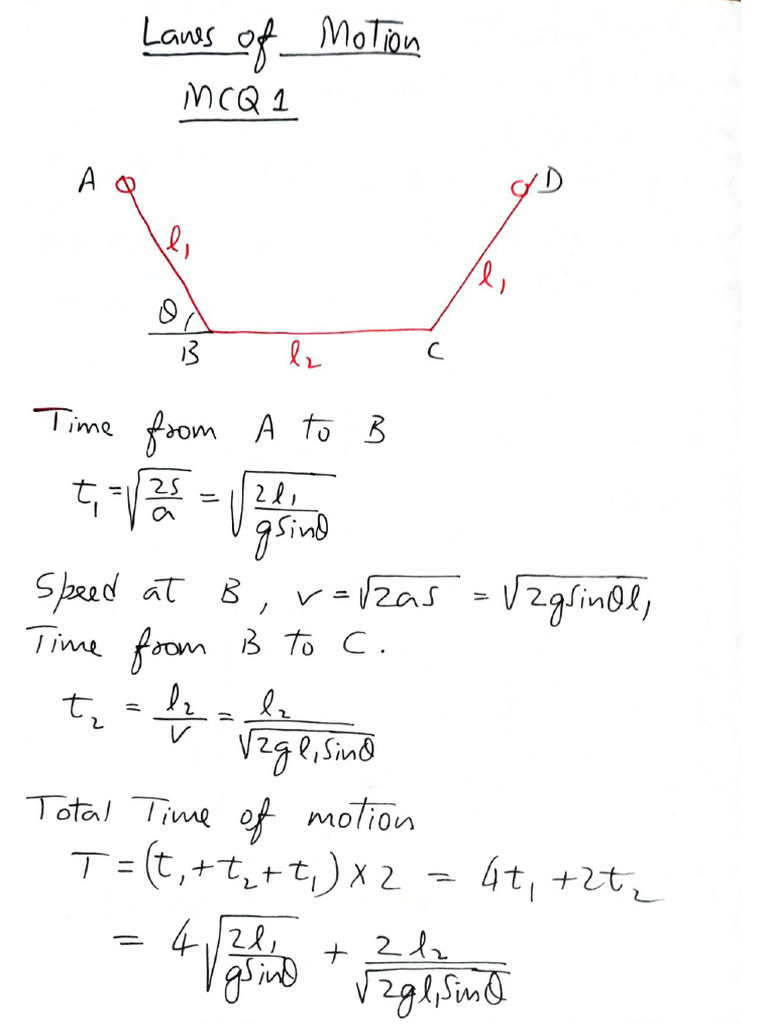 Laws of Motion
MCQ 1
A D
l₁ l₁
θ
B l₂ C
Time from A to B
t₁ = √(2s/a) = √(2l₁/gsinθ)
Speed at B, v = √2as = √2gsinθl₁
Time from B to C.
t₂ = l₂/v = l₂/√2gl₁sinθ
Total Time of motion
T = (t₁ + t₂ + t₁) × 2 = 4t₁ + 2t₂
= 4√(2l₁/gsinθ) + 2l₂/√2gl₁sinθ